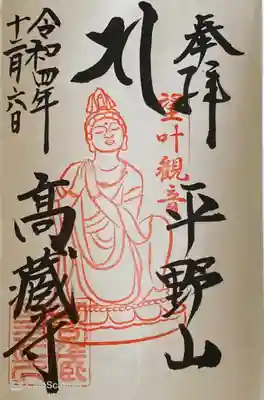 奉拝
平野山
望叶観音
札
高蔵寺
令和四年
十二月六日
CamScanner